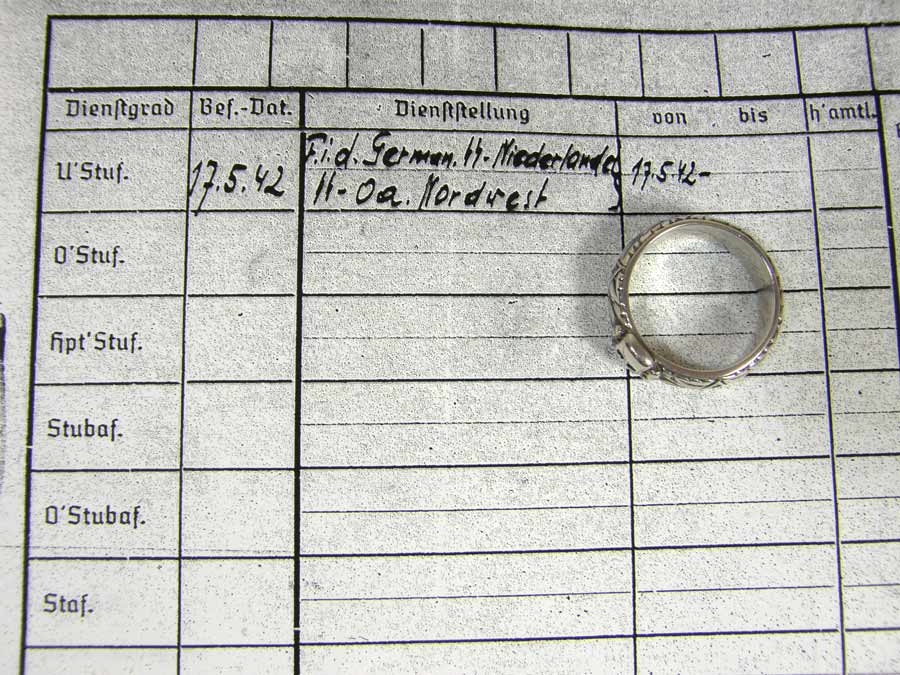 Dienstgrad Bef.-Dat. Dienststellung von bis h'amtl.
U'Stuf. 17.5.42 F.i.d. German. SS-Niederlande 17.5.42-
SS-Oa. Nordwest
O'Stuf.
Hpt'Stuf.
Stubaf.
O'Stubaf.
Staf.